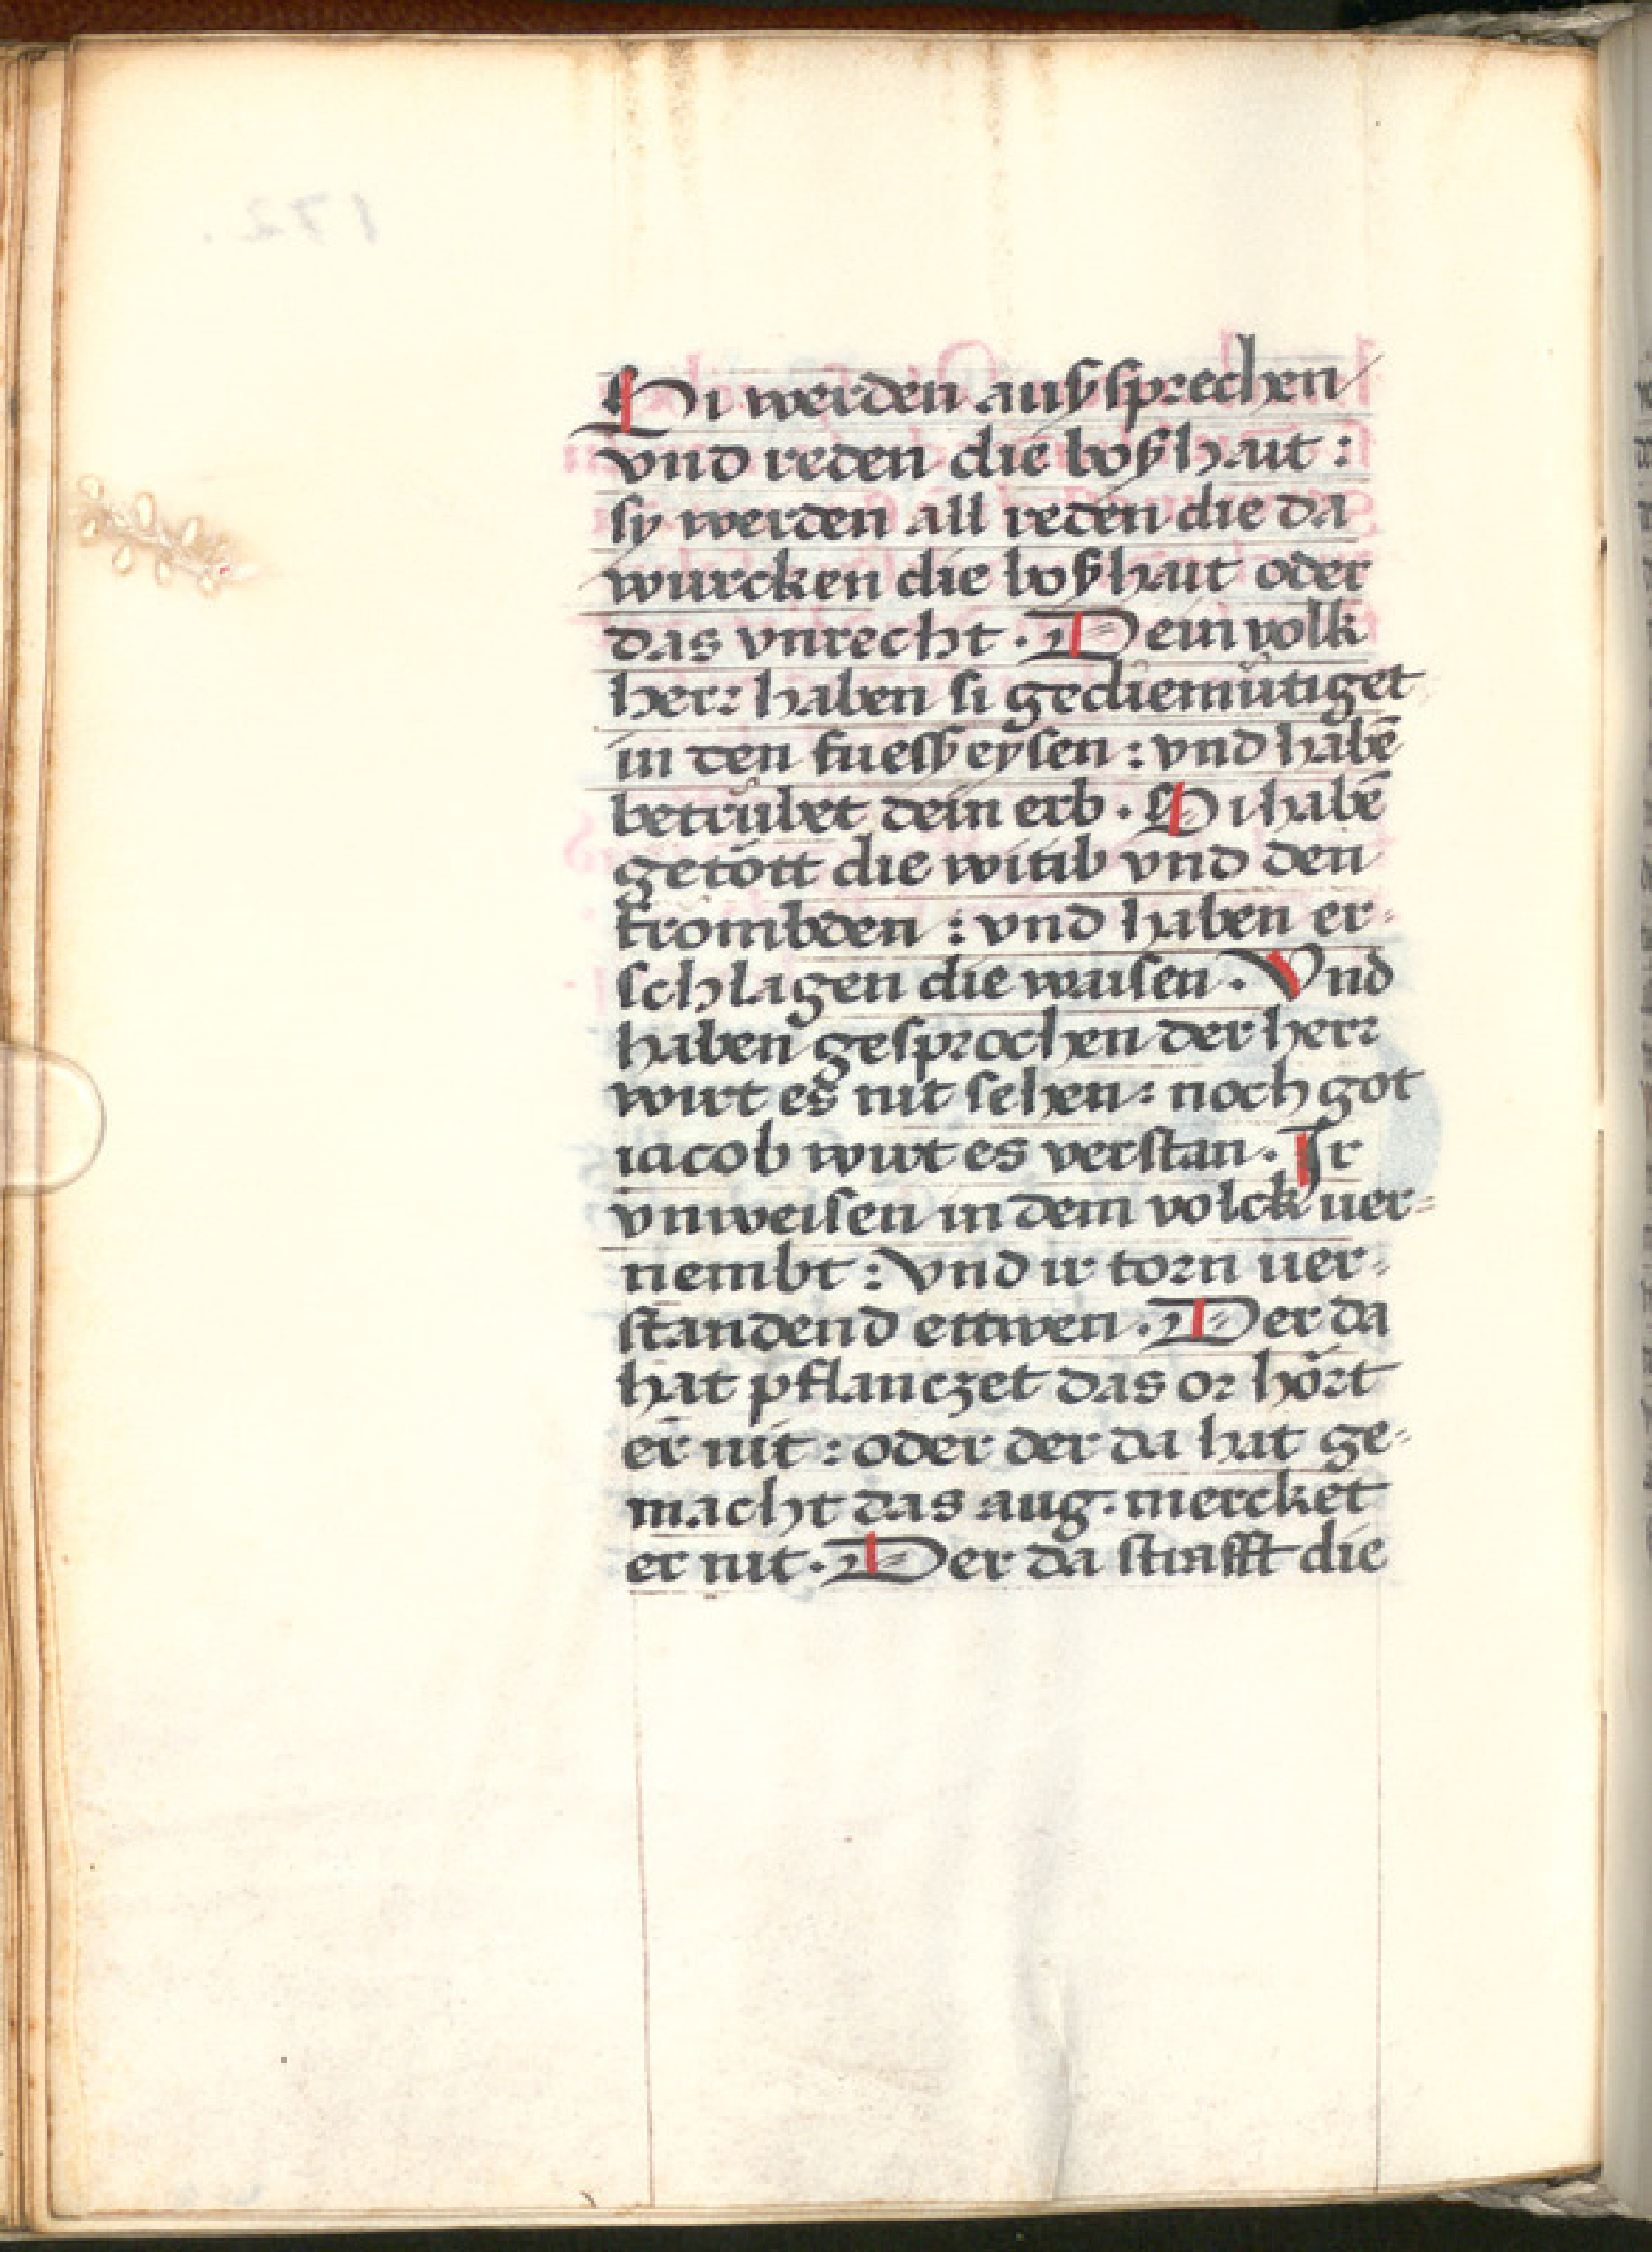 Si werden außsprechen
vnd reden die boßhait :
sy werden all reden die da
wurcken die boßhait oder
das vnrecht . Dein volk
herr haben si gediemütiget
in den fuesseysen : vnd habē
betrübet dein erb . Si habē
getött die witib vnd den
frombden : vnd haben er-
schlagen die waisen . Vnd
haben gesprochen der herr
wirt es nit sehen : noch got
iacob wirt es verstan . Ir
vnweisen in dem volck uer-
nembt : Vnd ir torn uer-
standend ettwen . Der da
hat pflanczet das or hört
er nit : oder der da hat ge-
macht das aug . mercket
er nit . Der da strafft die